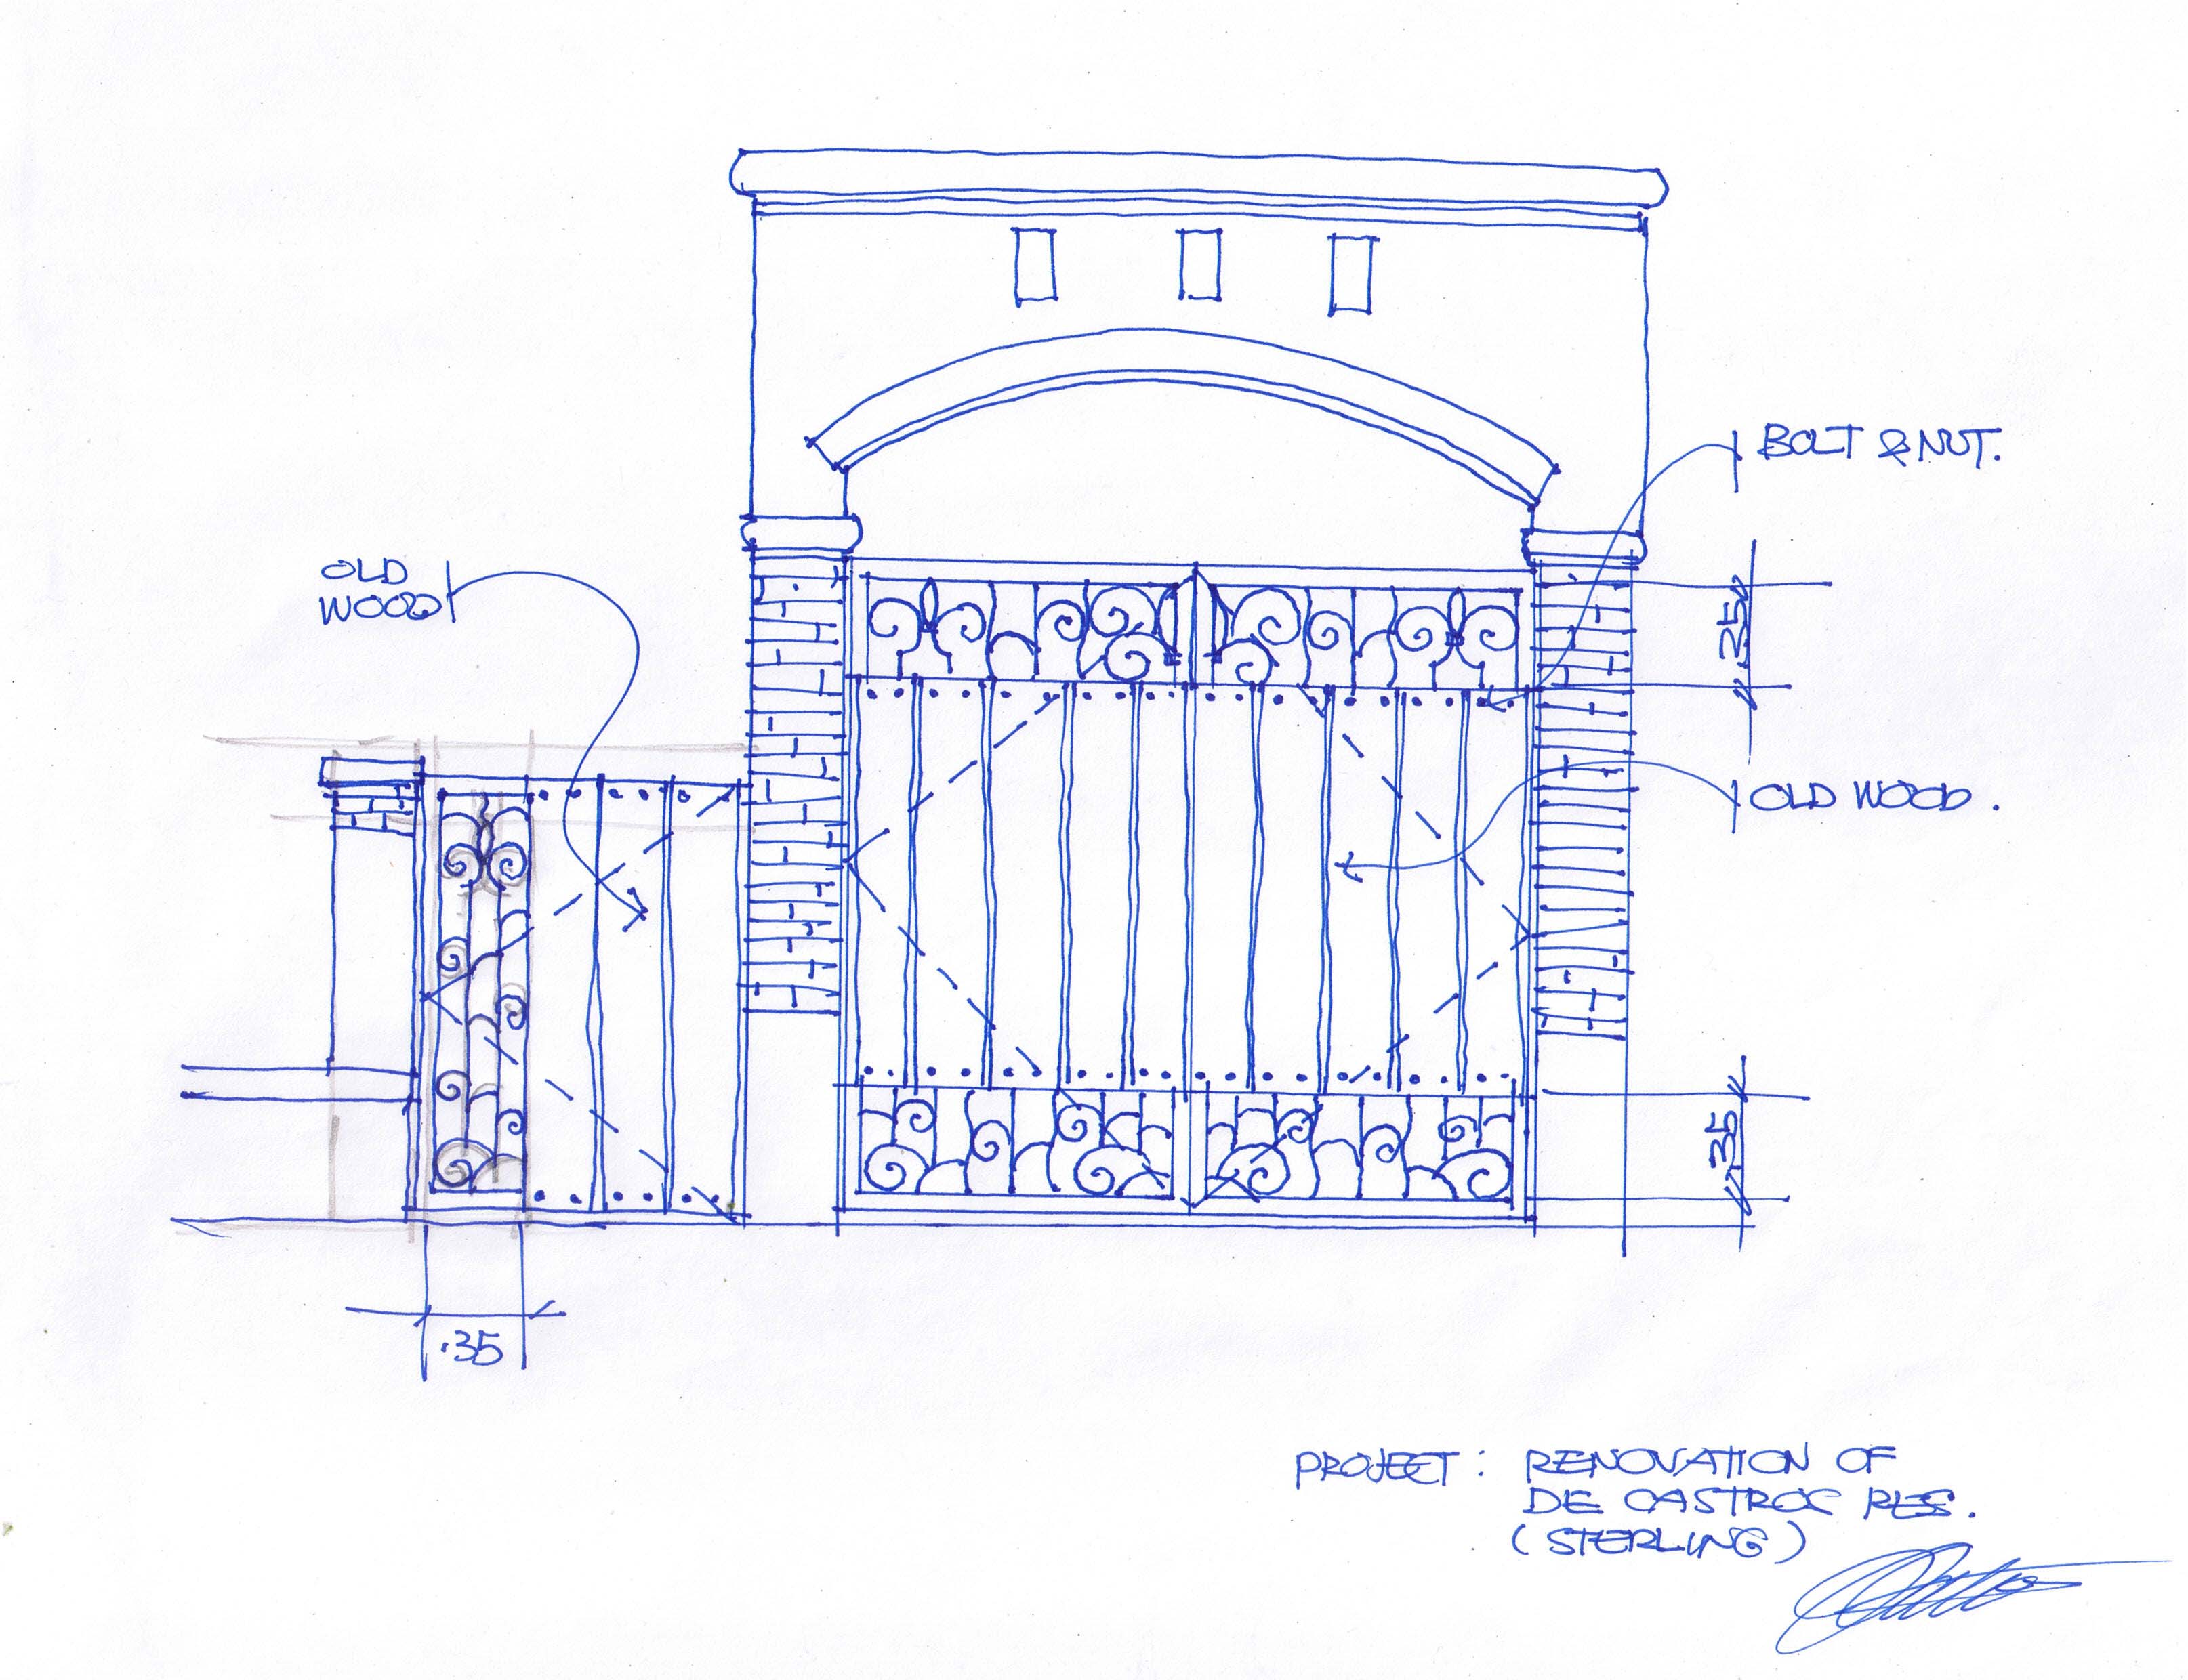 BOLT & NUT.
OLD
WOOD
.25
OLD WOOD.
.35
.35
PROJECT : RENOVATION OF
DE CASTROS RES.
(STERLING)